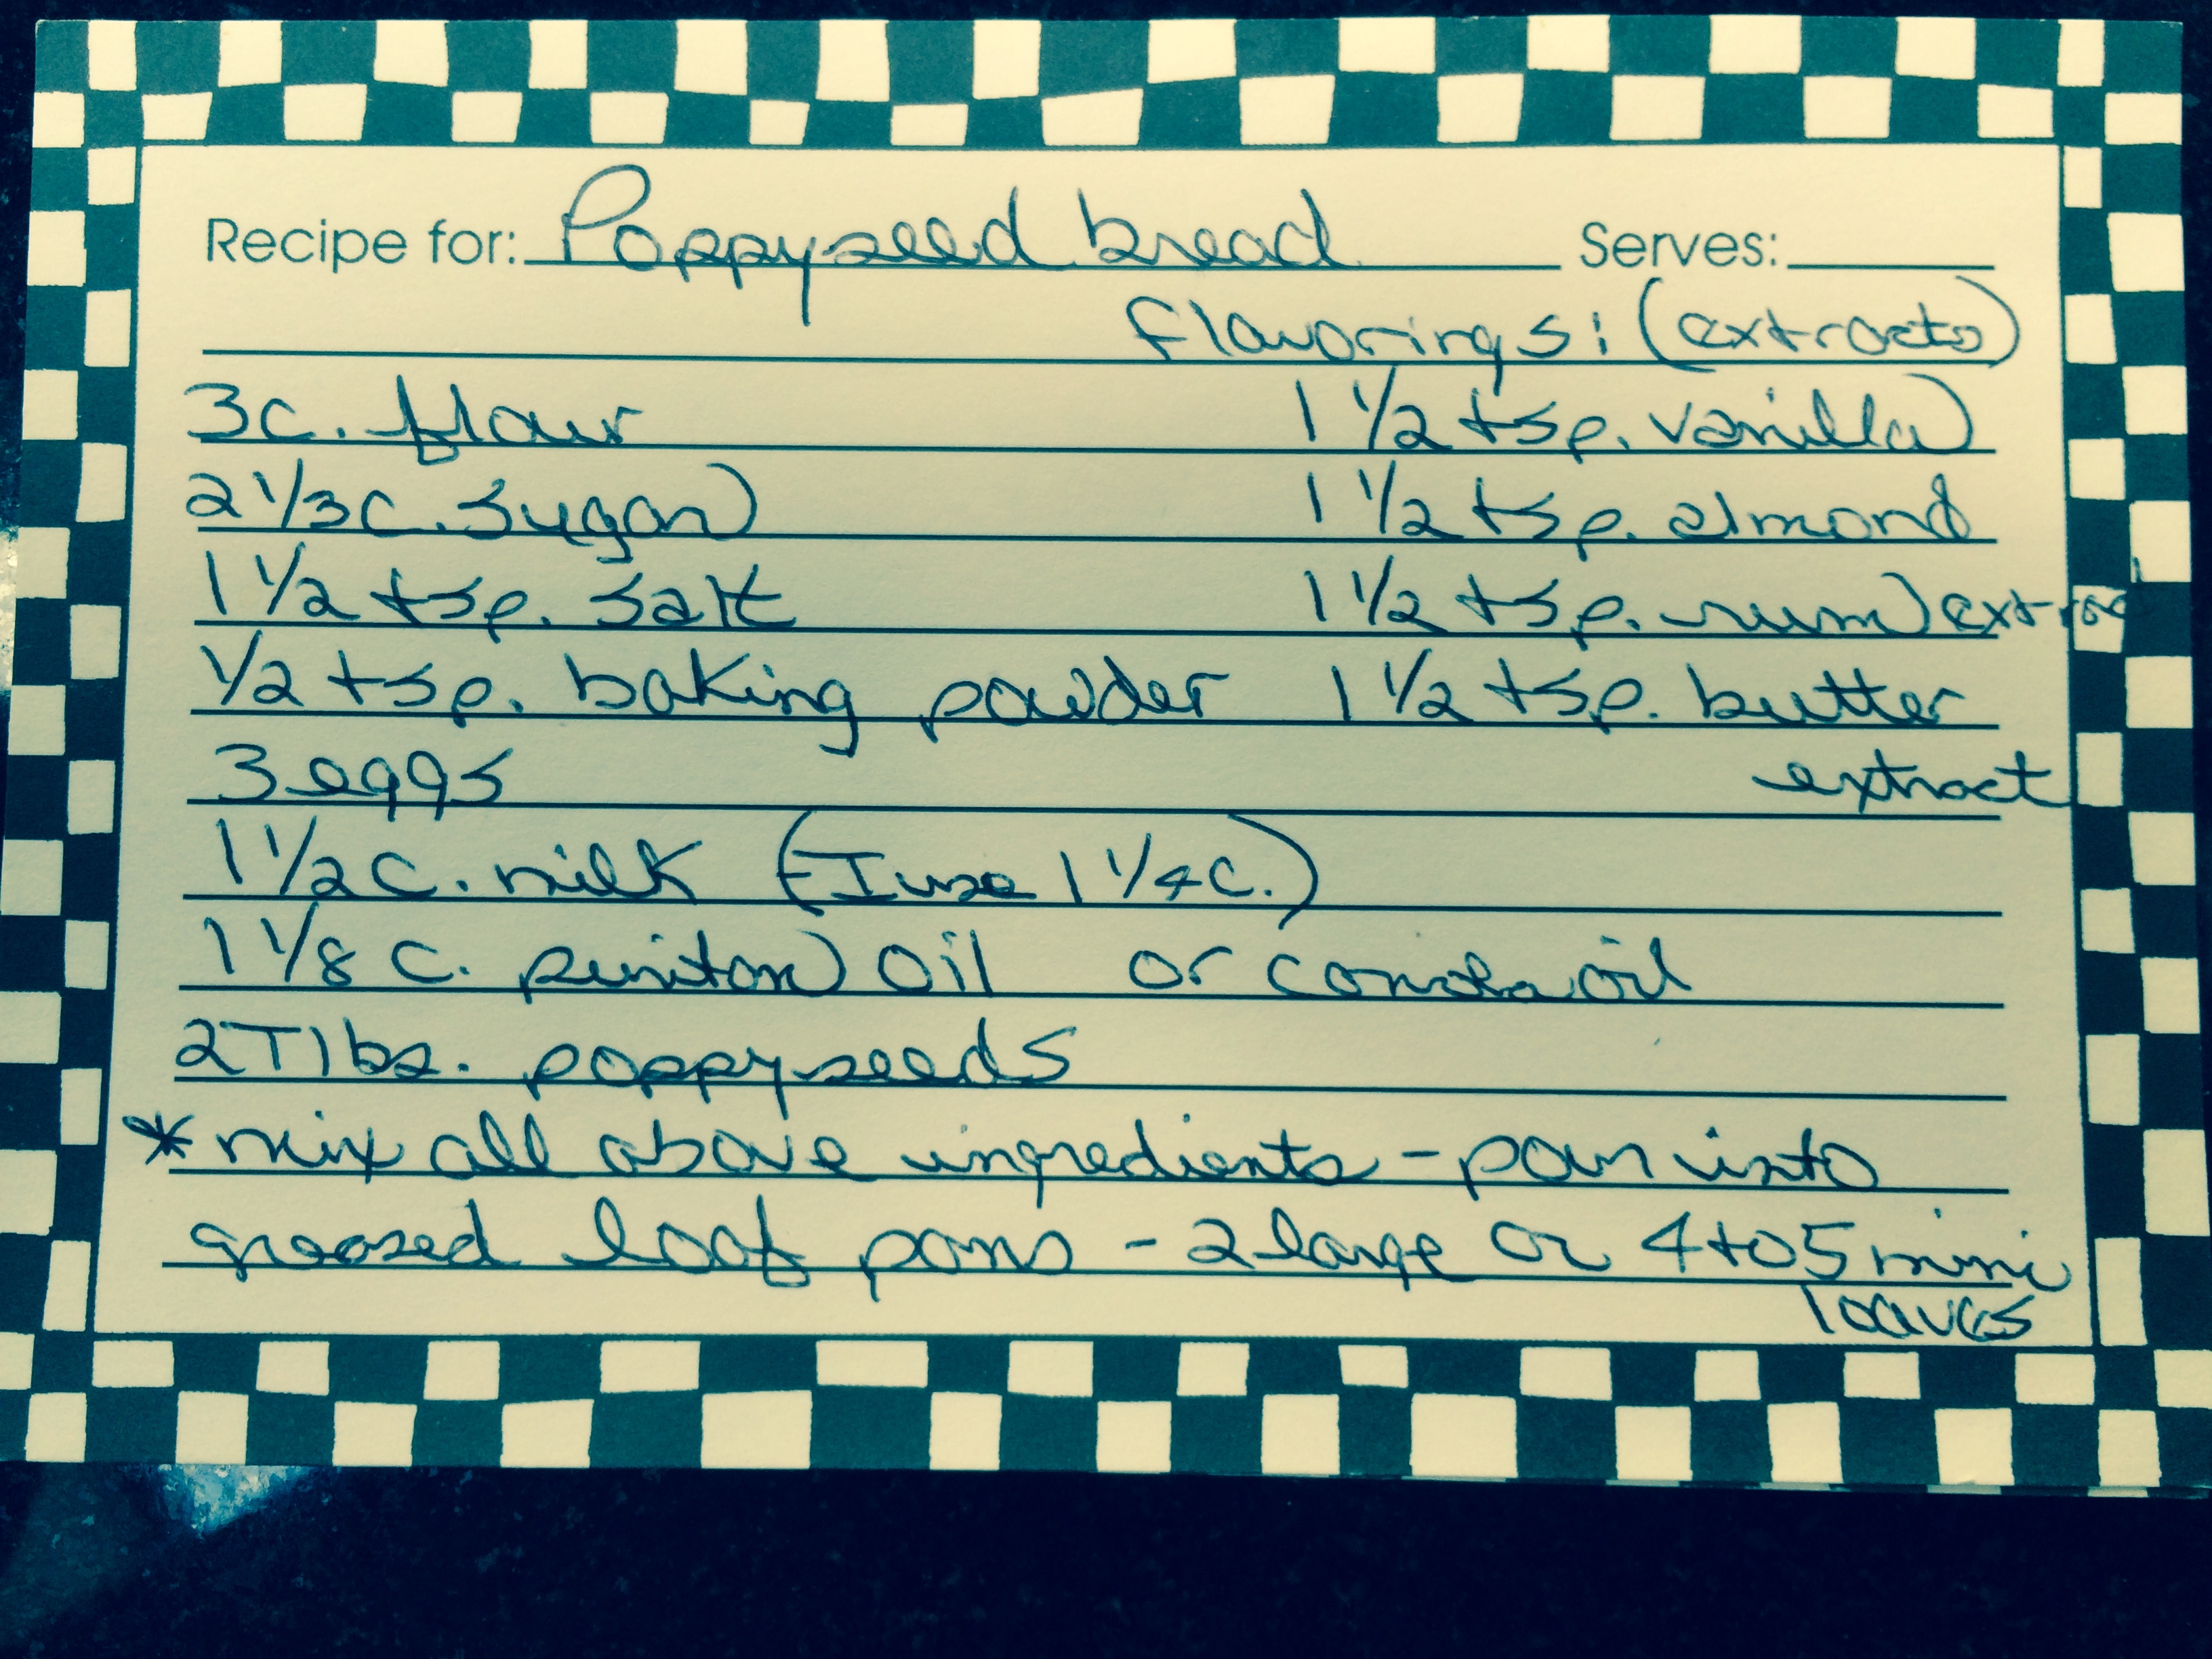 Recipe for: Poppyseed bread Serves:
flavorings: (extracts)
3c. flour 1 1/2 tsp. vanilla
2 1/3 c. sugar 1 1/2 tsp. almond
1 1/2 tsp. salt 1 1/2 tsp. rum extrac
1/2 tsp. baking powder 1 1/2 tsp. butter
3 eggs extract
1 1/2 c. milk (I use 1 1/4 c.)
1 1/8 c. puriton oil or canola oil
2 Tlbs. poppyseeds
* mix all above ingredients - pour into
greased loaf pans - 2 large or 4 to 5 mini
loaves